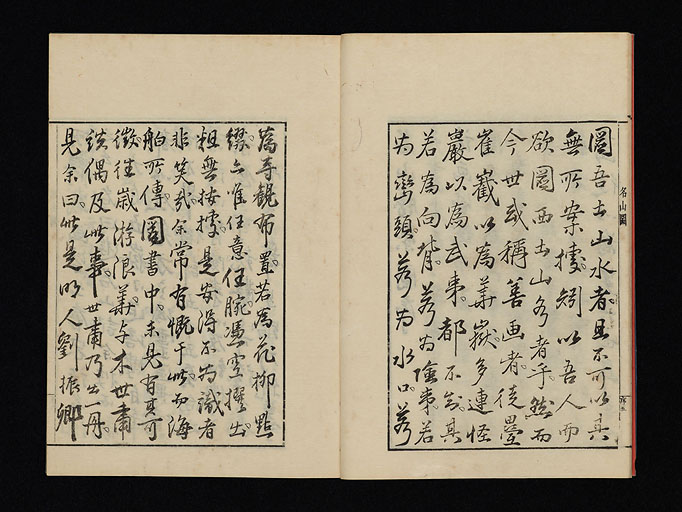 圖吾土山水者且不可以其
無所案據矧以吾人而
欲圖西土山名者乎然而
今世或稱善画者徒疊
崔巍以為華嶽多連怪
巖以為武夷都不知其
若為向背若為陰夷若
为巒頭若为水口若
為寺觀布置若為花柳點
綴只唯任意任腕憑空擢出
粗無按據是安得不为識者
非笑哉余常有慨于此而海
舶所傳圖書中未見有其可
徵往歲游浪華与木世肅
談偶及此事世肅乃出一冊
見余曰此是明人劉振卿
名山圖